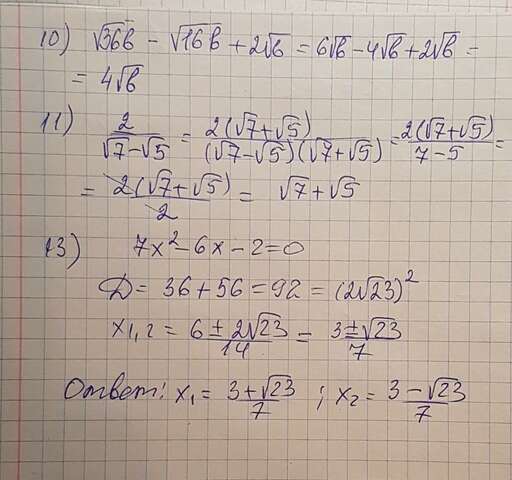 10) √36b − √16b + 2√b = 6√b − 4√b + 2√b =
= 4√b
11) 2/(√7−√5) = 2(√7+√5)/((√7−√5)(√7+√5)) = 2(√7+√5)/(7−5) =
= 2(√7+√5)/2 = √7+√5
13) 7x² − 6x − 2 = 0
D = 36 + 56 = 92 = (2√23)²
x₁,₂ = (6 ± 2√23)/14 = (3 ± √23)/7
Ответ: x₁ = (3+√23)/7 ; x₂ = (3−√23)/7